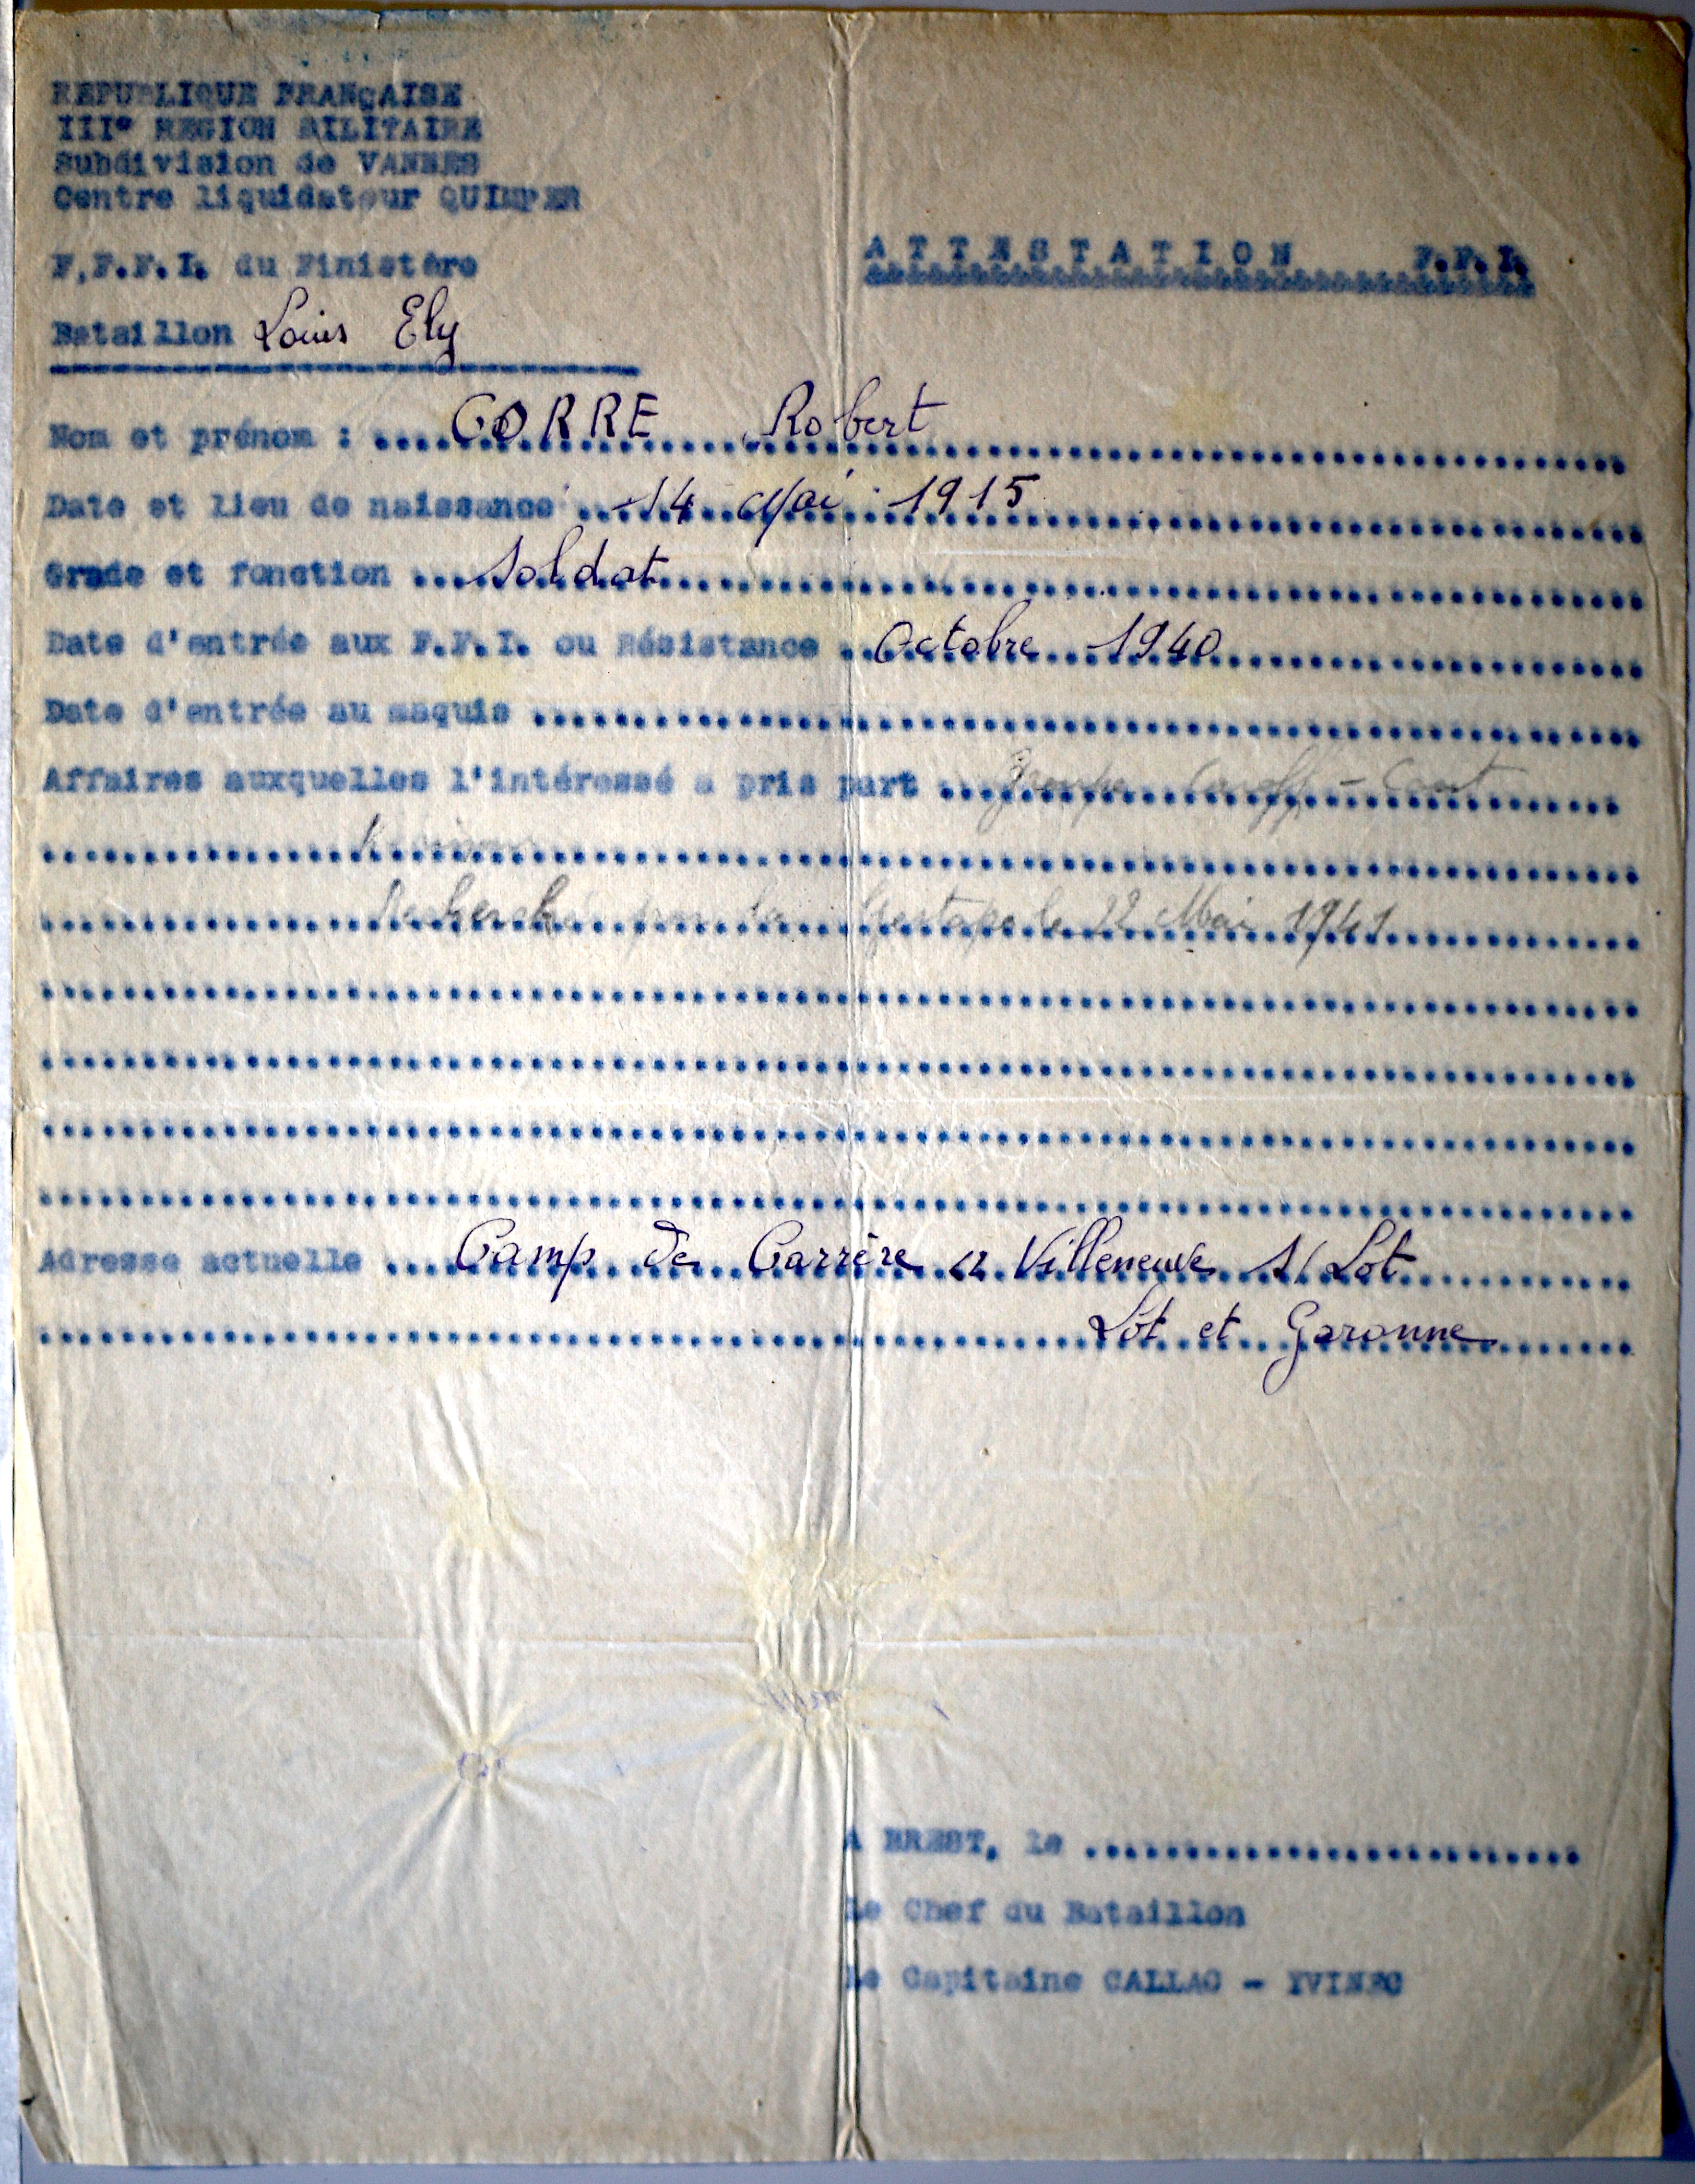 REPUBLIQUE FRANÇAISE
III° REGION MILITAIRE
Subdivision de VANNES
Centre liquidateur QUIMPER
F,F.F.I. du Finistère
ATTESTATION F.F.I.
Bataillon Louis Ely
Nom et prénom : CORRE Robert
Date et lieu de naissance 14 Mai 1915
Grade et fonction Soldat
Date d'entrée aux F.F.I. ou Résistance Octobre 1940
Date d'entrée au maquis
Affaires auxquelles l'intéressé a pris part Groupe
Recherché par la Gestapo le 22 Mai 1941
Adresse actuelle Camp de Carrère Villeneuve s/ Lot
Lot et Garonne
A BREST, le
Le Chef du Bataillon
Le Capitaine CALLAC - YVINEC